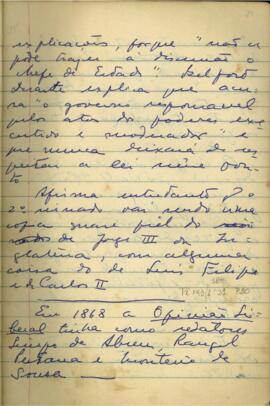 explicações, porque "não se
pode trazer à discussão o
chefe de Estado". Belfort
Duarte explica que acu-
sa "o governo responsavel
pelos atos dos poderes exe-
cutivo e moderador" e
que nunca deixará de res-
peitar a lei nesse pon-
to
Afirma entretanto q o
2º reinado vai sendo uma
copia quase fiel do
de Jorge III da In-
glaterra, com alguma
coisa do de Luis Filipe
e de Carlos II
Em 1868 a Opinião Li-
beral tinha como redatores
Limpo de Abreu, Rangel
Pestana e Monteiro de
Sousa